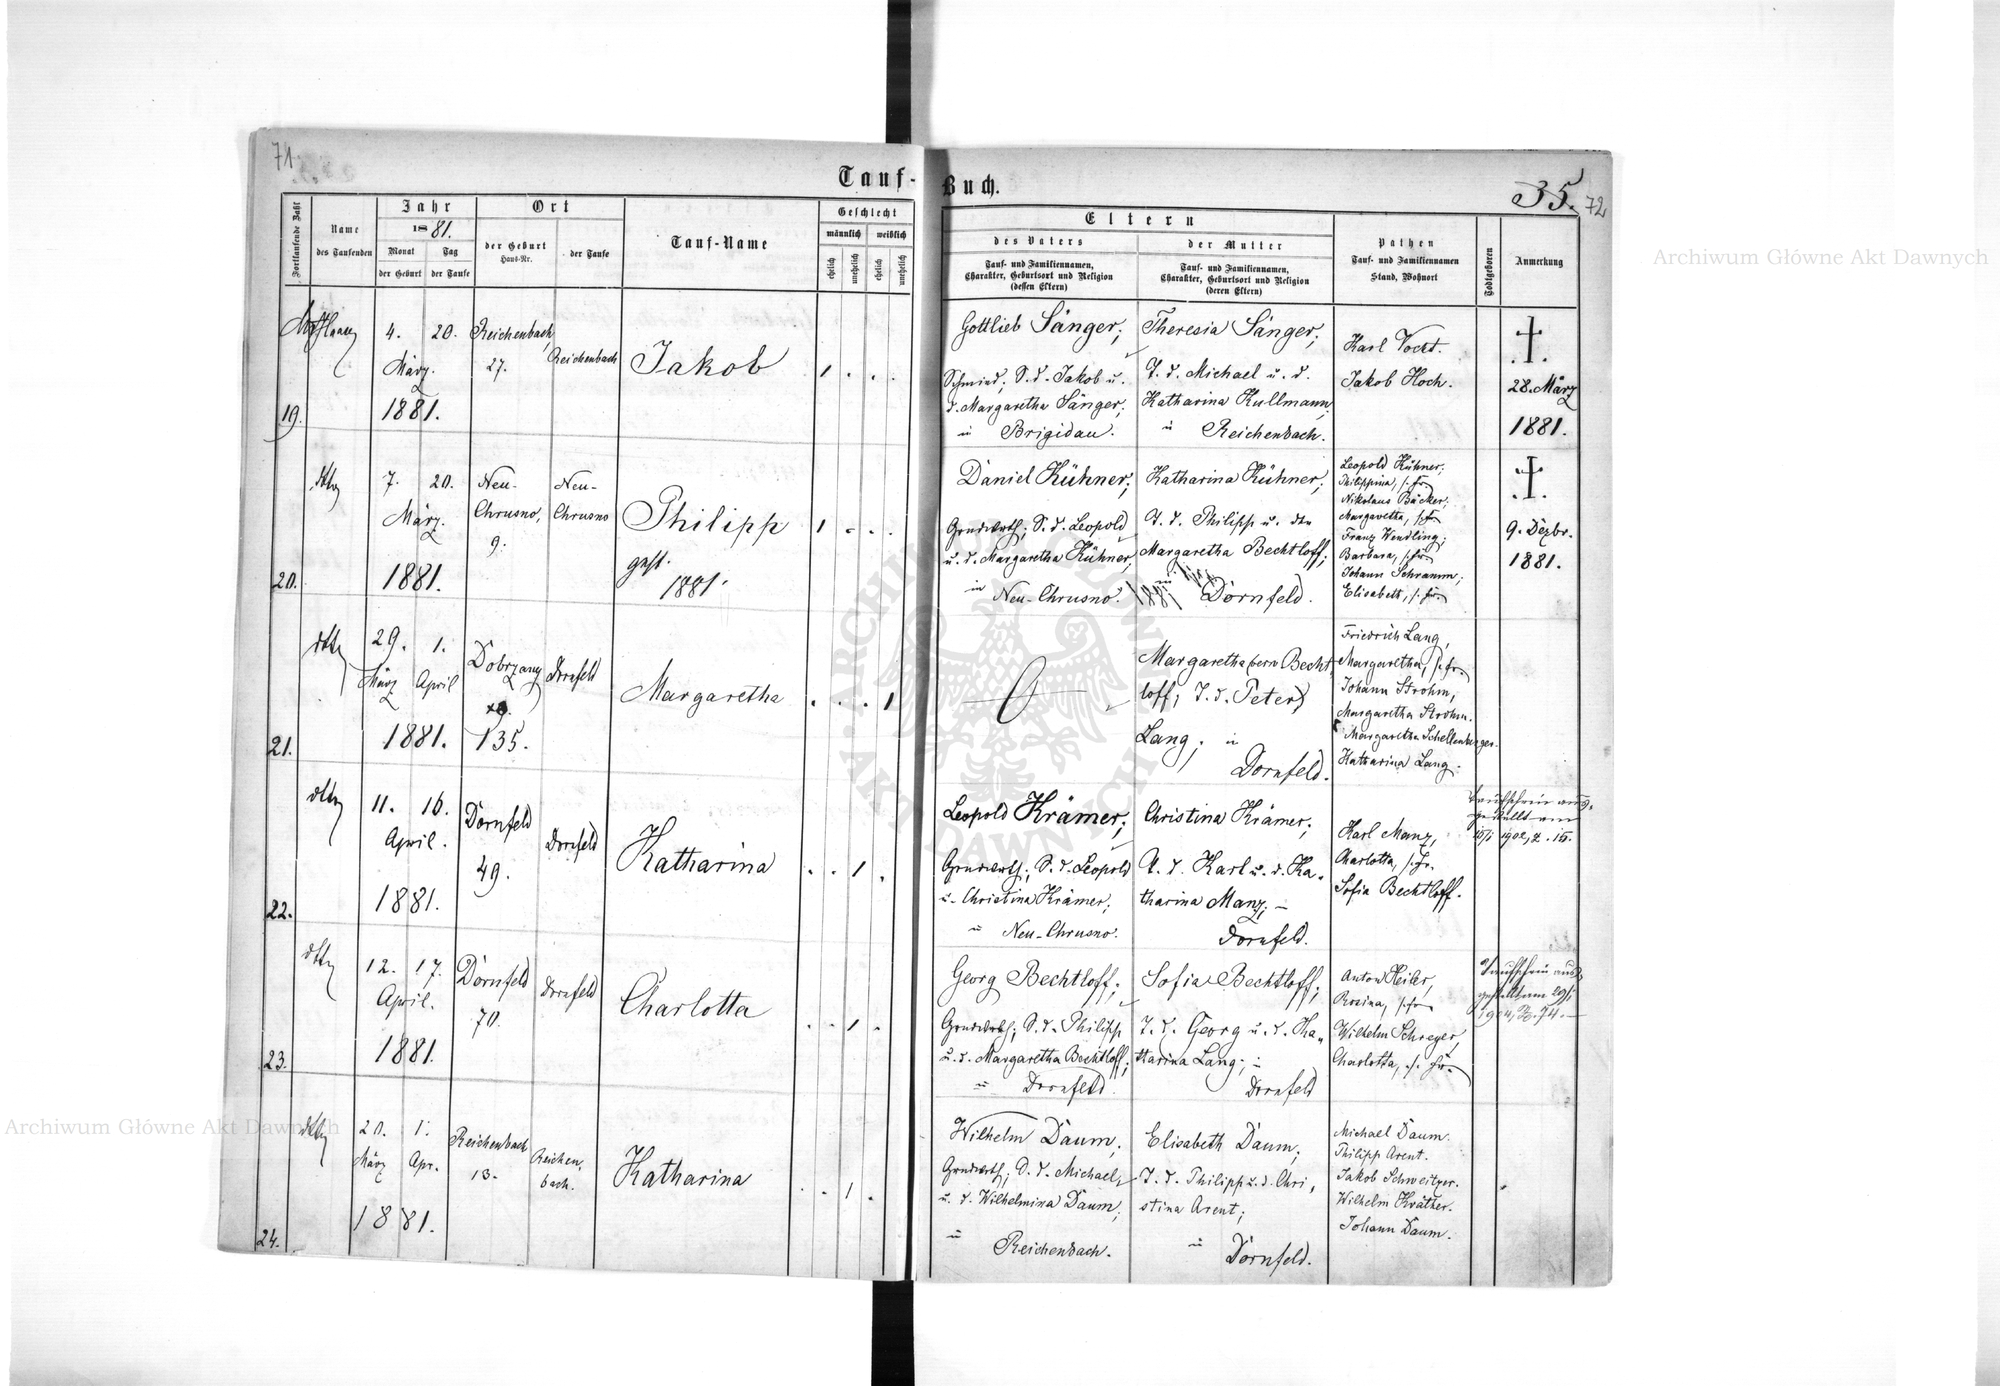 71.
Tauf-Buch.
35. 72
Fortlaufende Zahl
Name
des Taufenden
Jahr
1881.
Monat
Tag
der Geburt
der Taufe
Ort
der Geburt
Haus-Nr.
der Taufe
Tauf-Name
Geschlecht
männlich
weiblich
ehelich
unehelich
ehelich
unehelich
Eltern
des Vaters
Tauf- und Familiennamen,
Charakter, Geburtsort und Religion
(dessen Eltern)
der Mutter
Tauf- und Familiennamen,
Charakter, Geburtsort und Religion
(deren Eltern)
Pathen
Tauf- und Familiennamen
Stand, Wohnort
Todtgeboren
Anmerkung
19.
4. 20.
März.
1881.
Reichenbach,
27.
Reichenbach
Jakob
1 . . .
Gottlieb Sänger;
Schmied; S. d. Jakob u.
d. Margaretha Sänger;
in Brigidau.
Theresia Sänger;
T. d. Michael u. d.
Katharina Kullmann;
in Reichenbach.
Karl Vocht.
Jakob Hoch.
28. März
1881.
20.
dtto
7. 20.
März.
1881.
Neu-
Chrusno,
9.
Neu-
Chrusno
Philipp
gest.
1881.
1 . . .
Daniel Kühner;
Grundwirth; S. d. Leopold
u. d. Margaretha Kühner;
in Neu-Chrusno.
Katharina Kühner;
T. d. Philipp u. der
Margaretha Bechtloff;
in Dornfeld.
Leopold Kühner;
Philippina, s. Fr.
Nikolaus Bäcker;
Margaretha, s. Fr.
Franz Wendling;
Barbara, s. Fr.
Johann Schramm;
Elisabeth, s. Fr.
9. Dezbr.
1881.
21.
dtto
29. 1.
März April
1881.
Dobrzany
135.
Dornfeld
Margaretha
. . . 1
Margaretha Becht
loff; T. d. Peter
Lang; in
Dornfeld.
Friedrich Lang,
Margaretha, s. Fr.
Johann Strohm;
Margaretha Strohm.
Margaretha Schellenberger.
Katharina Lang.
22.
dtto
11. 16.
April.
1881.
Dornfeld
49.
Dornfeld
Katharina
. . 1 .
Leopold Krämer;
Grundwirth; S. d. Leopold
u. Christina Krämer;
in Neu-Chrusno.
Christina Krämer;
T. d. Karl u. d. Ka-
tharina Manz; –
Dornfeld.
Karl Manz,
Charlotta, s. Fr.
Sofia Bechtloff.
Taufschein aus-
gestellt am
15/1 1902, Z. 15.
23.
dtto
12. 17.
April.
1881.
Dornfeld
70.
Dornfeld
Charlotta
. . 1 .
Georg Bechtloff;
Grundwirth; S. d. Philipp
u. d. Margaretha Bechtloff;
in Dornfeld.
Sofia Bechtloff;
T. d. Georg u. d. Ka-
tharina Lang;
Dornfeld
Anton Heiler,
Rosina, s. Fr.
Wilhelm Schreyer,
Charlotta, s. Fr.
Taufschein aus-
gestellt am 29/1
1904, Z. 74.
24.
dtto
20. 1.
März Apr.
1881.
Reichenbach
13.
Reichen-
bach.
Katharina
. . 1 .
Wilhelm Daum;
Grundwirth; S. d. Michael,
u. d. Wilhelmina Daum;
in Reichenbach.
Elisabeth Daum;
T. d. Philipp u. d. Chri-
stina Arent;
in Dornfeld.
Michael Daum.
Philipp Arent.
Jakob Schweitzer.
Wilhelm Kräther.
Johann Daum.
Archiwum Główne Akt Dawnych
Archiwum Główne Akt Dawnych